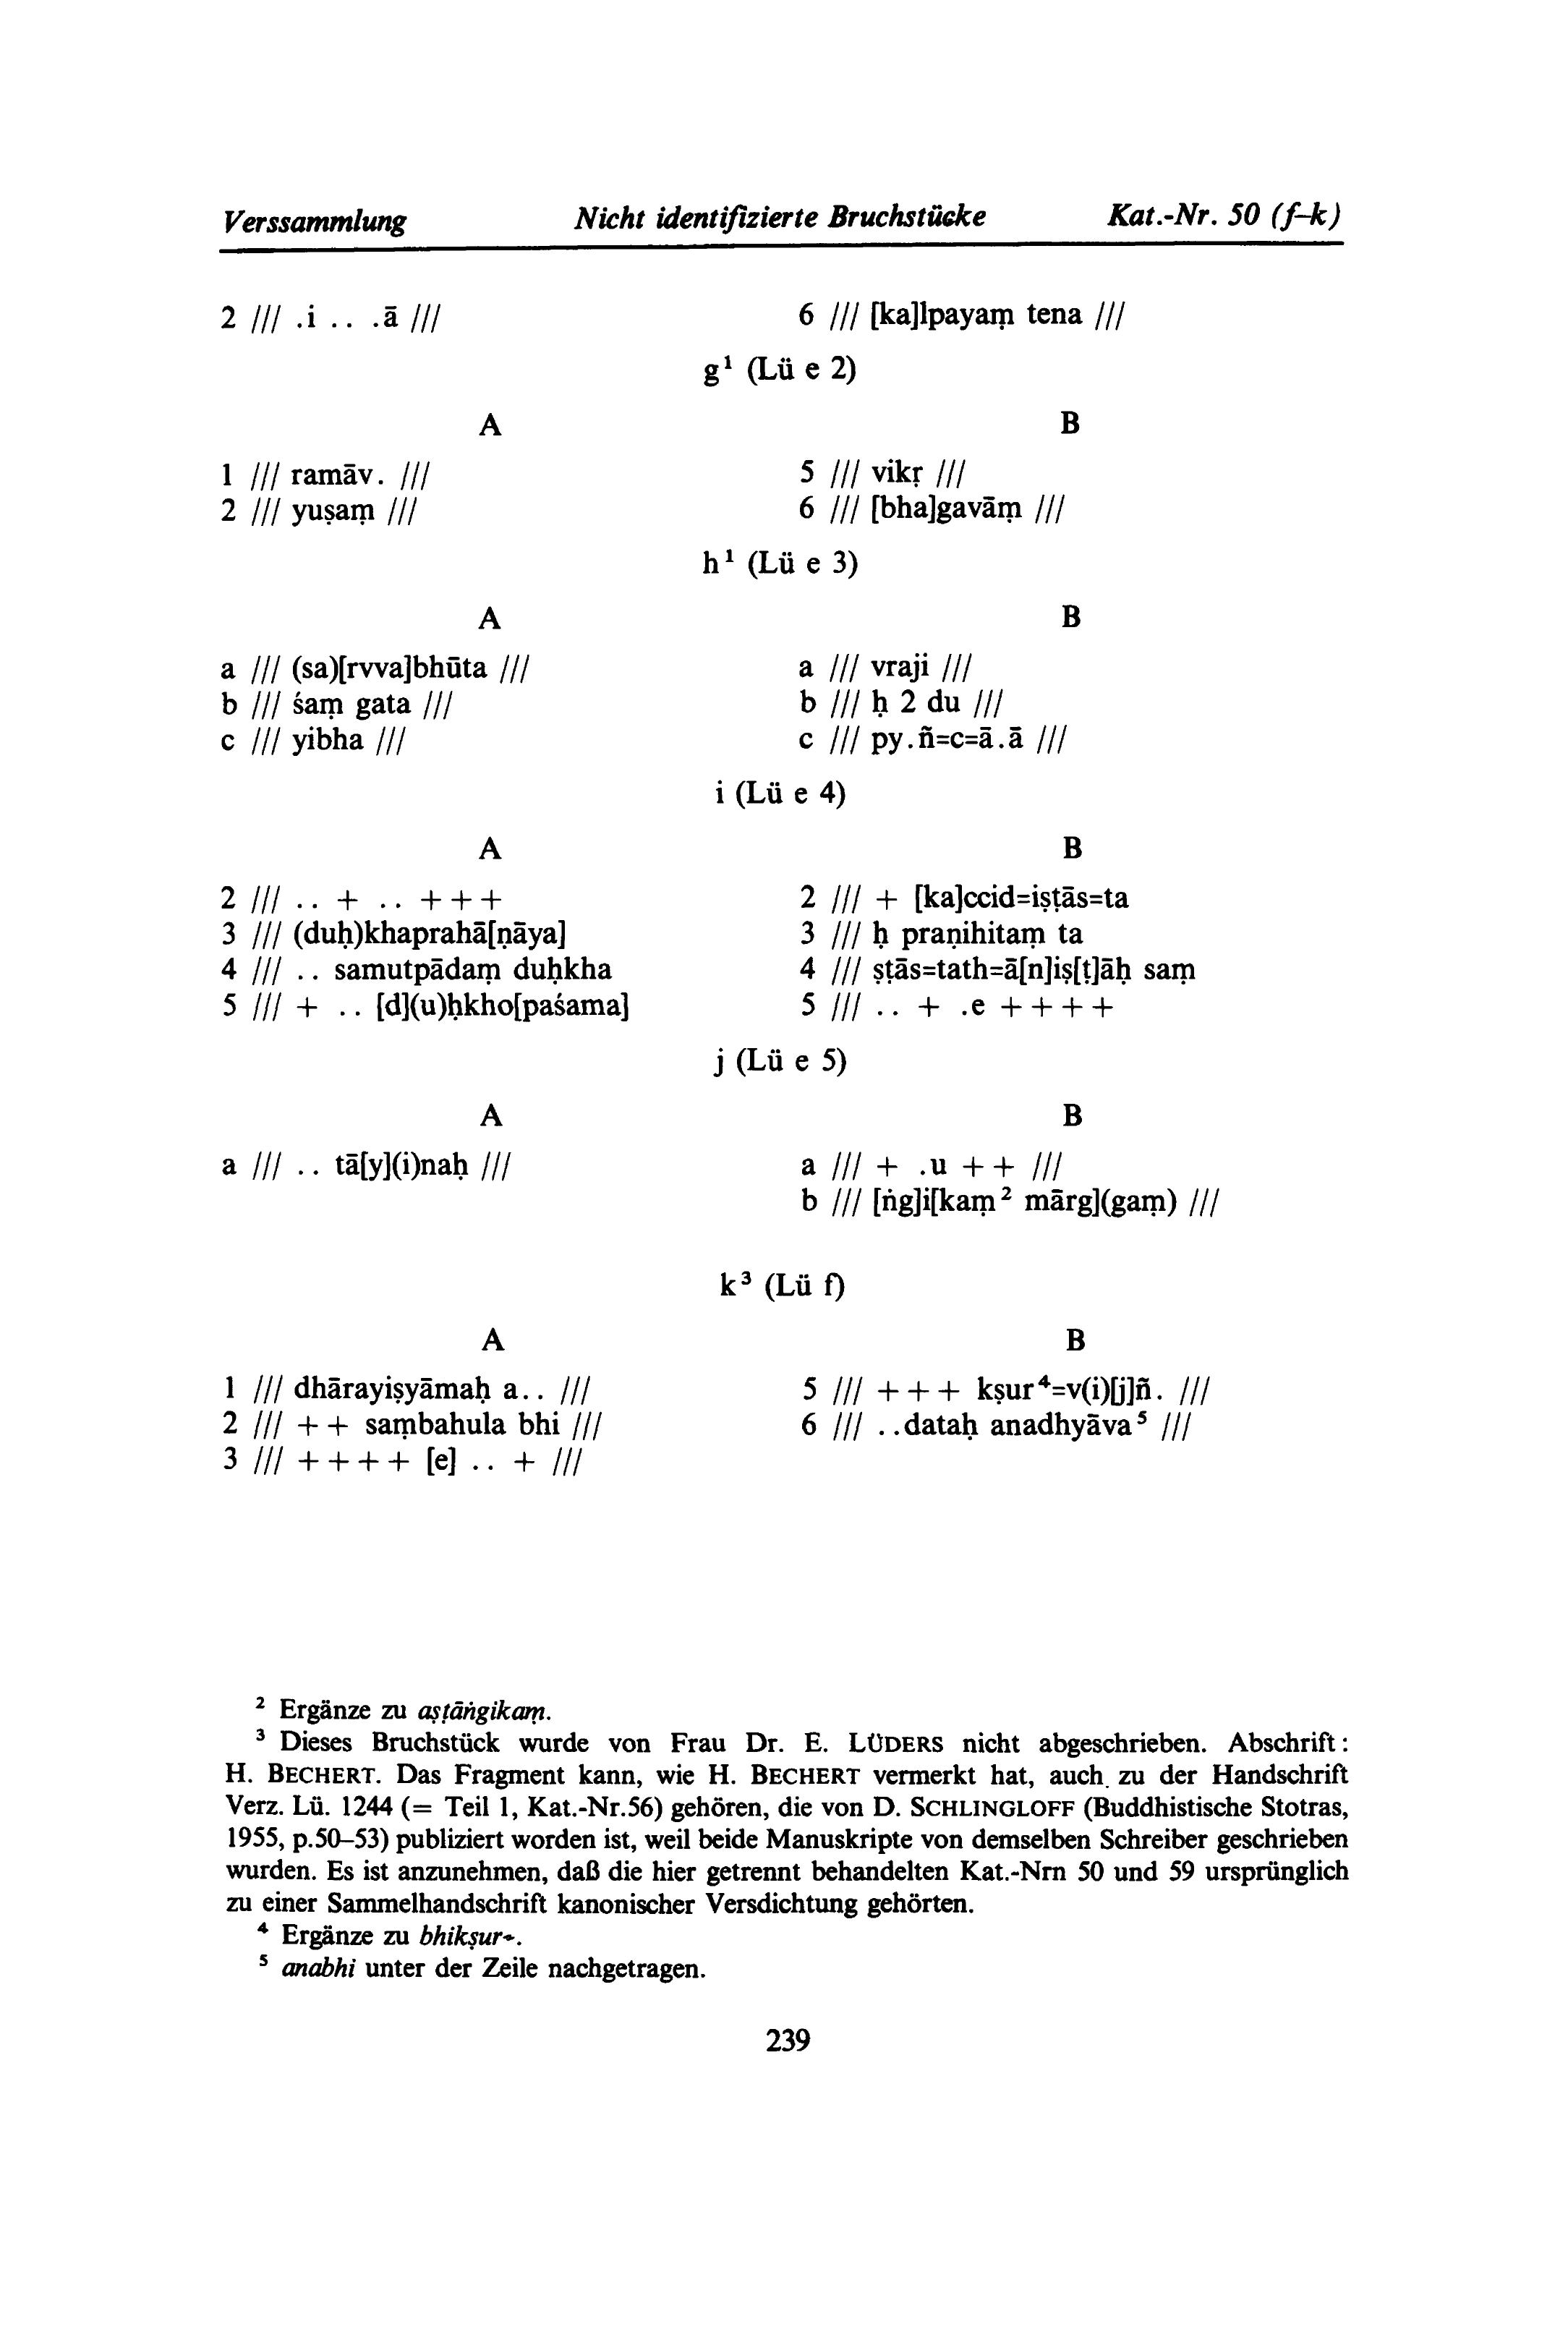 Verssammlung Nicht identifizierte Bruchstücke Kat.-Nr. 50 (f–k)
2 /// .i .. .ā /// 6 /// [ka]lpayaṃ tena ///
g¹ (Lü e 2)
A B
1 /// ramāv. /// 5 /// vikṛ ///
2 /// yuṣaṃ /// 6 /// [bha]gavāṃ ///
h¹ (Lü e 3)
A B
a /// (sa)[rvva]bhūta /// a /// vraji ///
b /// śaṃ gata /// b /// ḥ 2 du ///
c /// yibha /// c /// py.ñ=c=ā.ā ///
i (Lü e 4)
A B
2 /// .. + .. + + + 2 /// + [ka]ccid=iṣṭās=ta
3 /// (duḥ)khaprahā[ṇāya] 3 /// ḥ praṇihitaṃ ta
4 /// .. samutpādaṃ duḥkha 4 /// ṣṭās=tath=ā[n]iṣ[ṭ]āḥ saṃ
5 /// + .. [d](u)ḥkho[paśama] 5 /// .. + .e + + + +
j (Lü e 5)
A B
a /// .. tā[y](i)naḥ /// a /// + .u + + ///
b /// [ṅg]i[kaṃ² mārg](gaṃ) ///
k³ (Lü f)
A B
1 /// dhārayiṣyāmaḥ a.. /// 5 /// + + + kṣur⁴=v(i)[j]ñ. ///
2 /// + + saṃbahula bhi /// 6 /// ..dataḥ anadhyāva⁵ ///
3 /// + + + + [e] .. + ///
² Ergänze zu aṣṭāṅgikaṃ.
³ Dieses Bruchstück wurde von Frau Dr. E. LÜDERS nicht abgeschrieben. Abschrift:
H. BECHERT. Das Fragment kann, wie H. BECHERT vermerkt hat, auch zu der Handschrift
Verz. Lü. 1244 (= Teil 1, Kat.-Nr.56) gehören, die von D. SCHLINGLOFF (Buddhistische Stotras,
1955, p.50–53) publiziert worden ist, weil beide Manuskripte von demselben Schreiber geschrieben
wurden. Es ist anzunehmen, daß die hier getrennt behandelten Kat.-Nrn 50 und 59 ursprünglich
zu einer Sammelhandschrift kanonischer Versdichtung gehörten.
⁴ Ergänze zu bhikṣur-.
⁵ anabhi unter der Zeile nachgetragen.
239